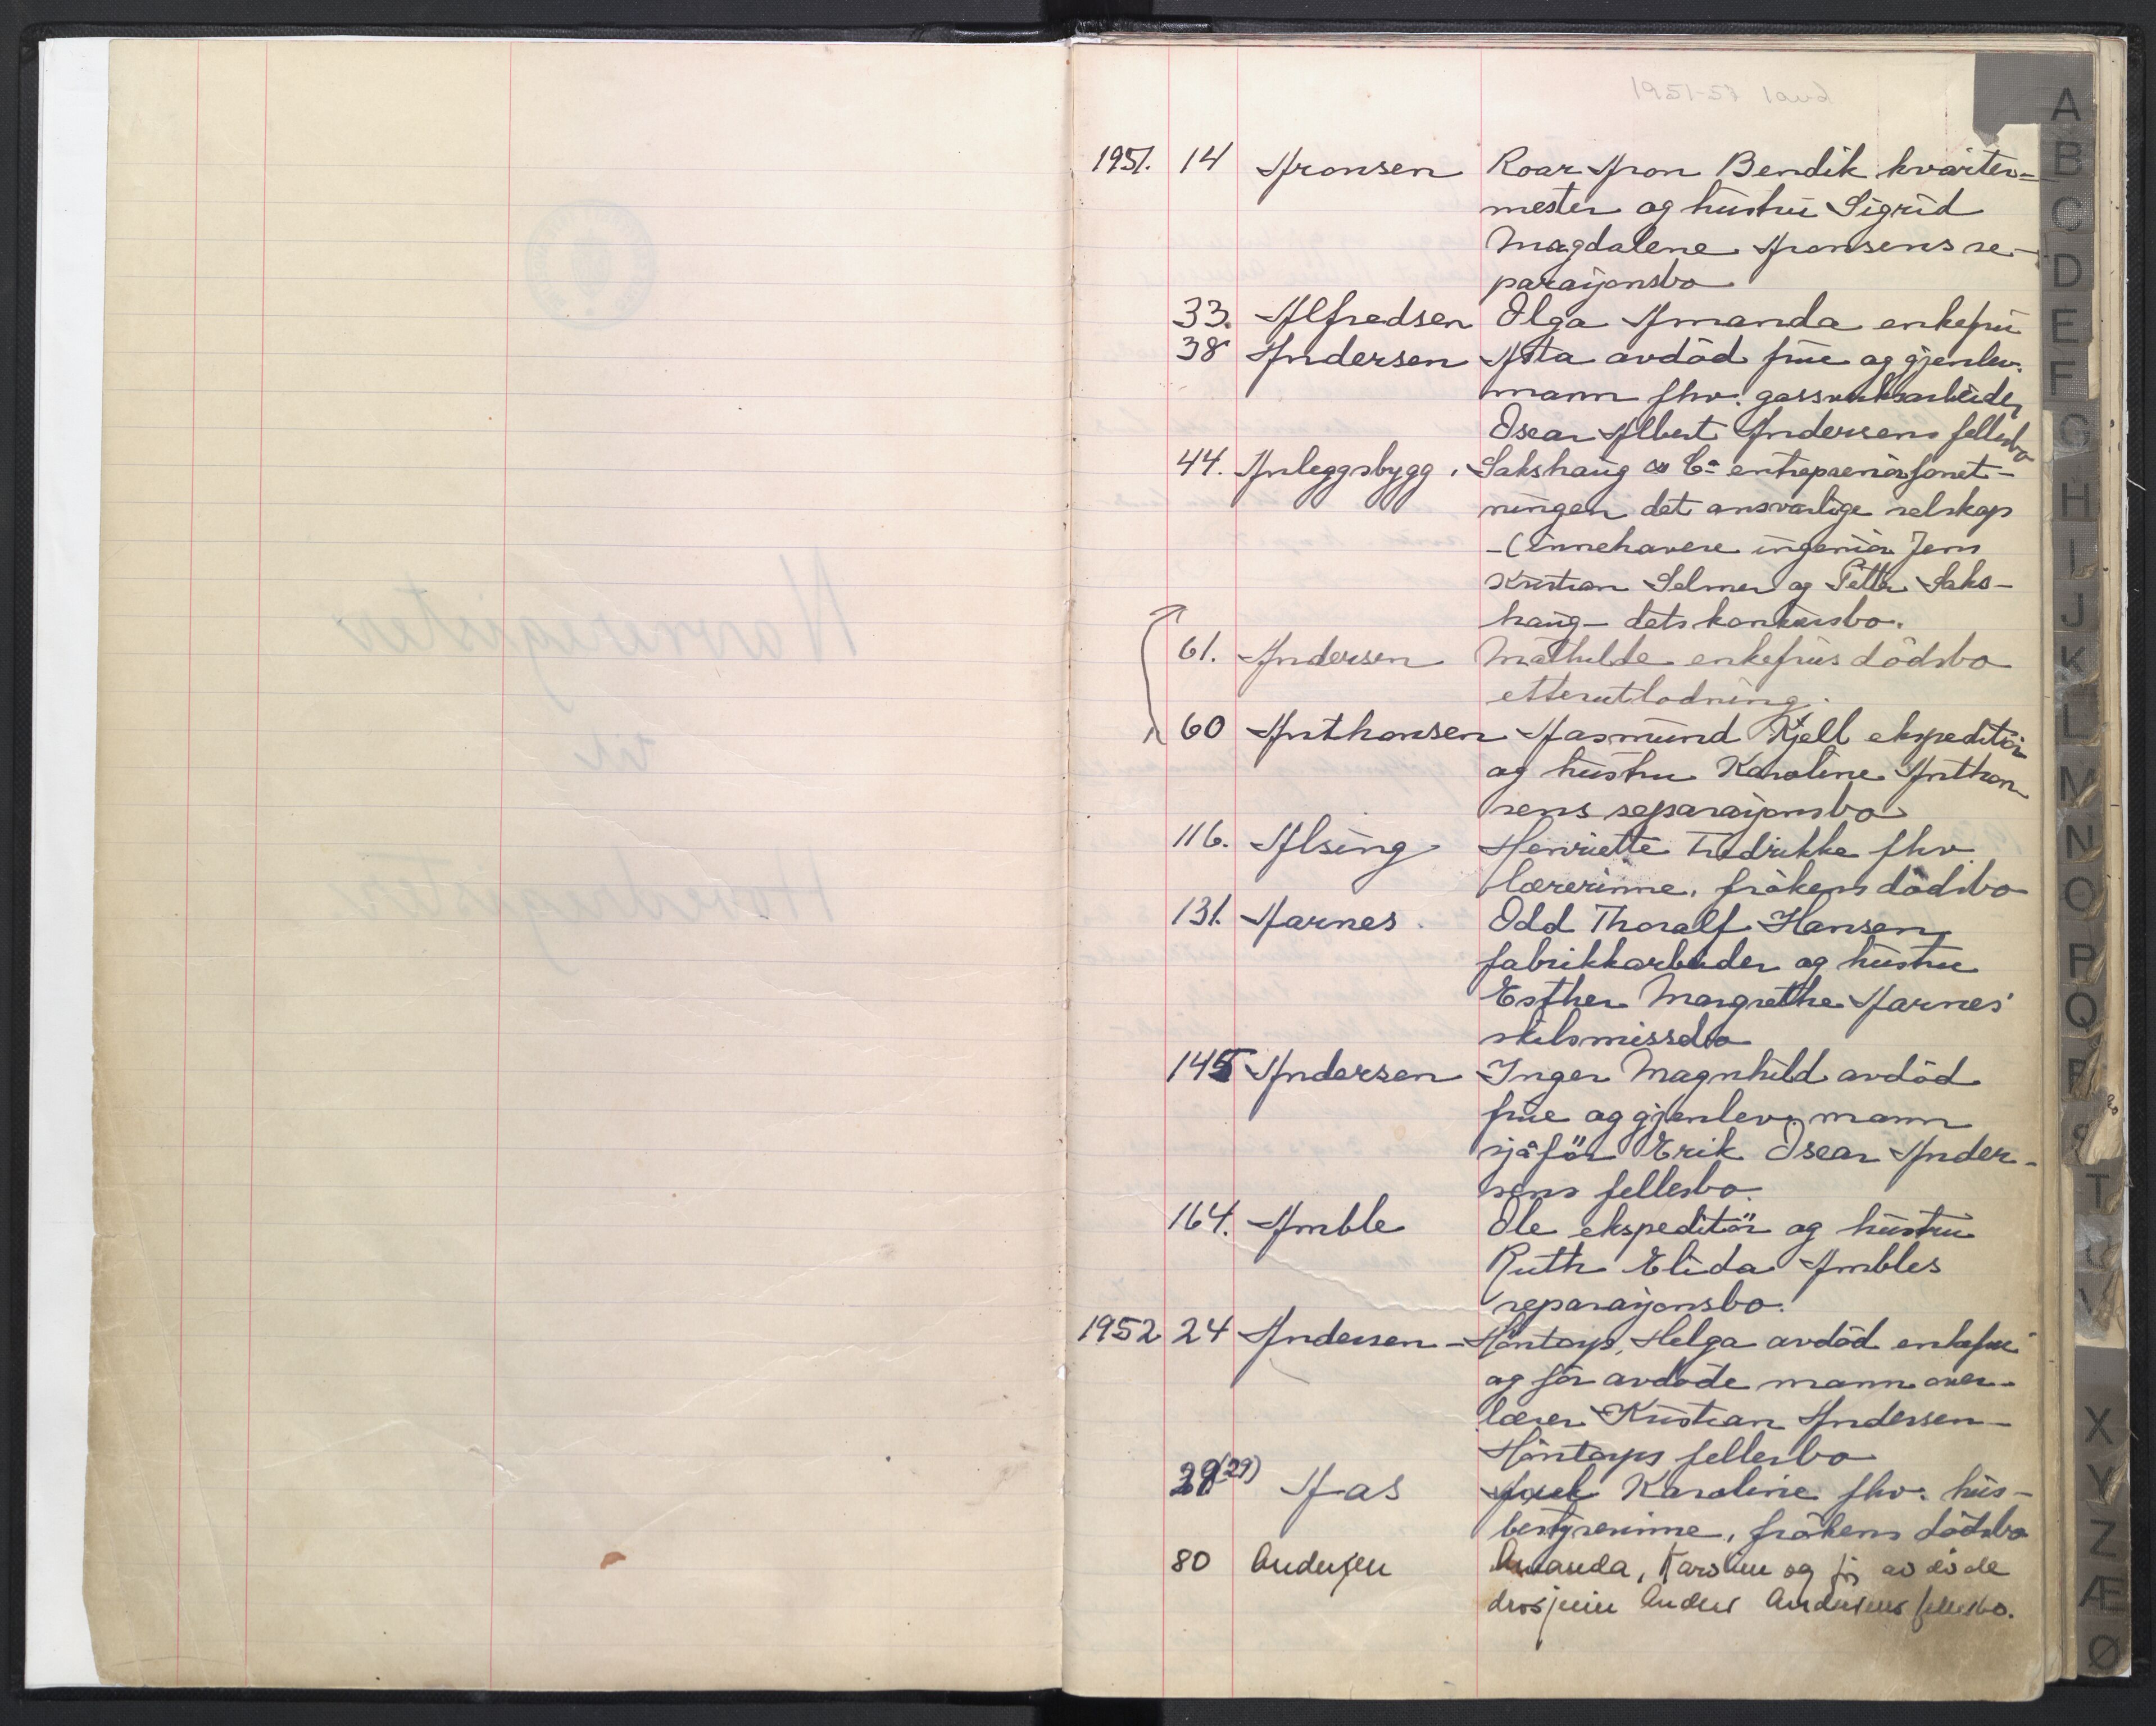 1951-53 1 avd
1951. 14 Aronsen Roar Aron Bendik kvarter=
mester og hustru Sigrid
Magdalene Aronsens se-
parasjonsbo
33. Alfredsen Olga Amanda enkefru
38 Andersen Asta avdöd frue og gjenlev.
mann fhv. gassverksarbeider
Oscar Albert Andersens fellesbo
44. Anleggsbygg. Sakshaug & Co entreprenörforret-
ningen det ansvarlige selskap
- (innehavere ingeniör Jens
Kristian Selmer og Petter Saks-
haug - dets konkursbo.
61. Andersen Mathilde enkefrus dödsbo
etterutlodning.
60 Anthonsen Aasmund Kjell ekspeditör
og hustru Karoline Anthon
sens separasjonsbo
116. Alsing Henriette Fredrikke fhv.
lærerinne, frökens dödsbo
131. Aarnes. Odd Thoralf Hansen,
fabrikkarbeider og hustru
Esther Margrethe Aarnes'
skilsmissebo
145 Andersen Inger Magnhild avdöd
frue og gjenlev. mann
sjåför Erik Oscar Ander-
sens fellesbo.
164. Amble Ole ekspeditör og hustru
Ruth Elida Ambles
separasjonsbo.
1952 24 Andersen - Höntorp, Helga avdöd enkefru
og för avdöde mann over-
lærer Kristian Andersen-
Höntorps fellesbo
29 (29) Aas Axele Karoline fhv. hus-
bestyrerinne, frökens dödsbo
80 Andersen Amanda, Karoline og før avdøde
drosjeeier Anders Andersens fellesbo.
Navneregister
til
Hovedregister
A
B
C
D
E
F
G
H
I
J
K
L
M
N
O
P
Q
R
S
T
U
V
X
Y
Z
Æ
Ø